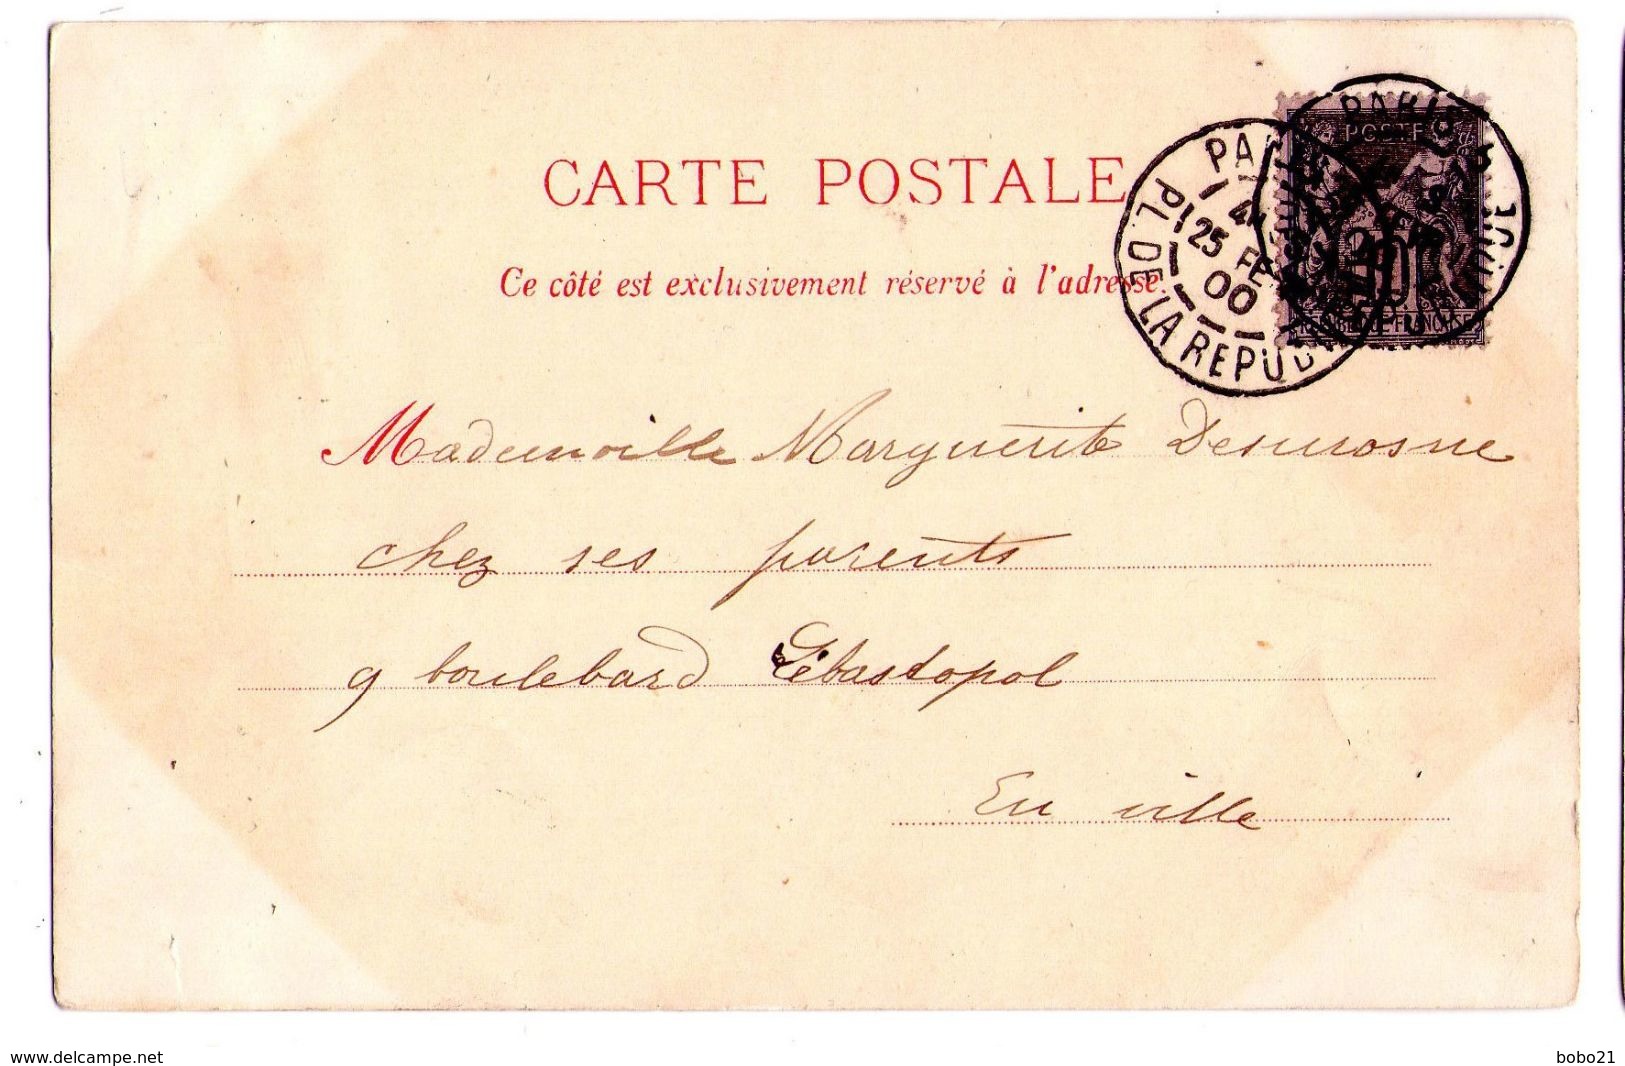 CARTE POSTALE
Ce côté est exclusivement réservé à l'adresse.
POSTE
PARIS
25 FE
00
PL. DE LA REPUB
REPUBLIQUE FRANCAISE
Mademoiselle Marguerite
chez ses parents
9 boulebard Sébastopol
En ville
www.delcampe.net
bobo21